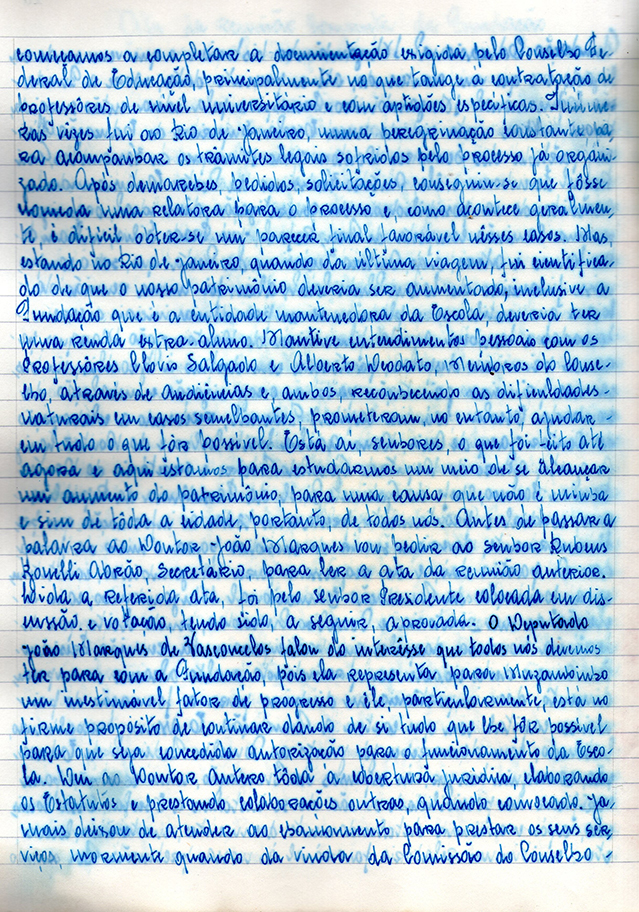 começamos a completar a documentação exigida pelo Conselho Fe-
deral de Educação, principalmente no que tange à contratação de
professôres de nível universitário e com aptidões específicas. Inúme-
ras vêzes fui ao Rio de Janeiro, numa peregrinação constante pa-
ra acompanhar os trâmites legais sofridos pelo processo já organi-
zado. Após demarches, pedidos, solicitações, conseguiu-se que fôsse
nomeada uma relatora para o processo e, como acontece geralmen-
te, é difícil obter-se um parecer final favorável nêsses casos. Mas,
estando no Rio de Janeiro, quando da última viagem, fui cientifica-
do de que o nosso patrimônio deveria ser aumentado, inclusive a
Fundação que é a entidade mantenedora da Escola, deveria ter
uma renda extra-aluno. Mantive entendimentos pessoais com os
Professôres Clovis Salgado e Alberto Deodato, Membros do Conse-
lho, através de audiências e, ambos, reconhecendo as dificuldades
naturais em casos semelhantes, prometeram, no entanto, ajudar
em tudo o que fôr possível. Está aí, senhores, o que foi feito até
agora e aqui estamos para estudarmos um meio de se alcançar
um aumento do patrimônio, para uma causa que não é minha
e sim de tôda a cidade, portanto, de todos nós. Antes de passar a
palavra ao Doutor João Marques vou pedir ao senhor Rubens
Rovelli Abrão, Secretário, para ler a ata da reunião anterior.
Lida a referida ata, foi pelo senhor Presidente colocada em dis-
cussão e votação, tendo sido, a seguir, aprovada. O Deputado
João Marques de Vasconcelos falou do interêsse que todos nós devemos
ter para com a Fundação, pois ela representa para Muzambinho
um inestimável fator de progresso e êle, particularmente, está no
firme propósito de continar dando de si tudo que lhe fôr possível
para que seja concedida autorização para o funcionamento da Esco-
la. Deu ao Doutor Antero tôda a cobertura jurídica, elaborando
os Estatutos e prestando colaborações outras, quando convocado. Ja-
mais deixou de atender ao chamamento para prestar os seus ser-
viços, mormente quando da vinda da Comissão do Conselho